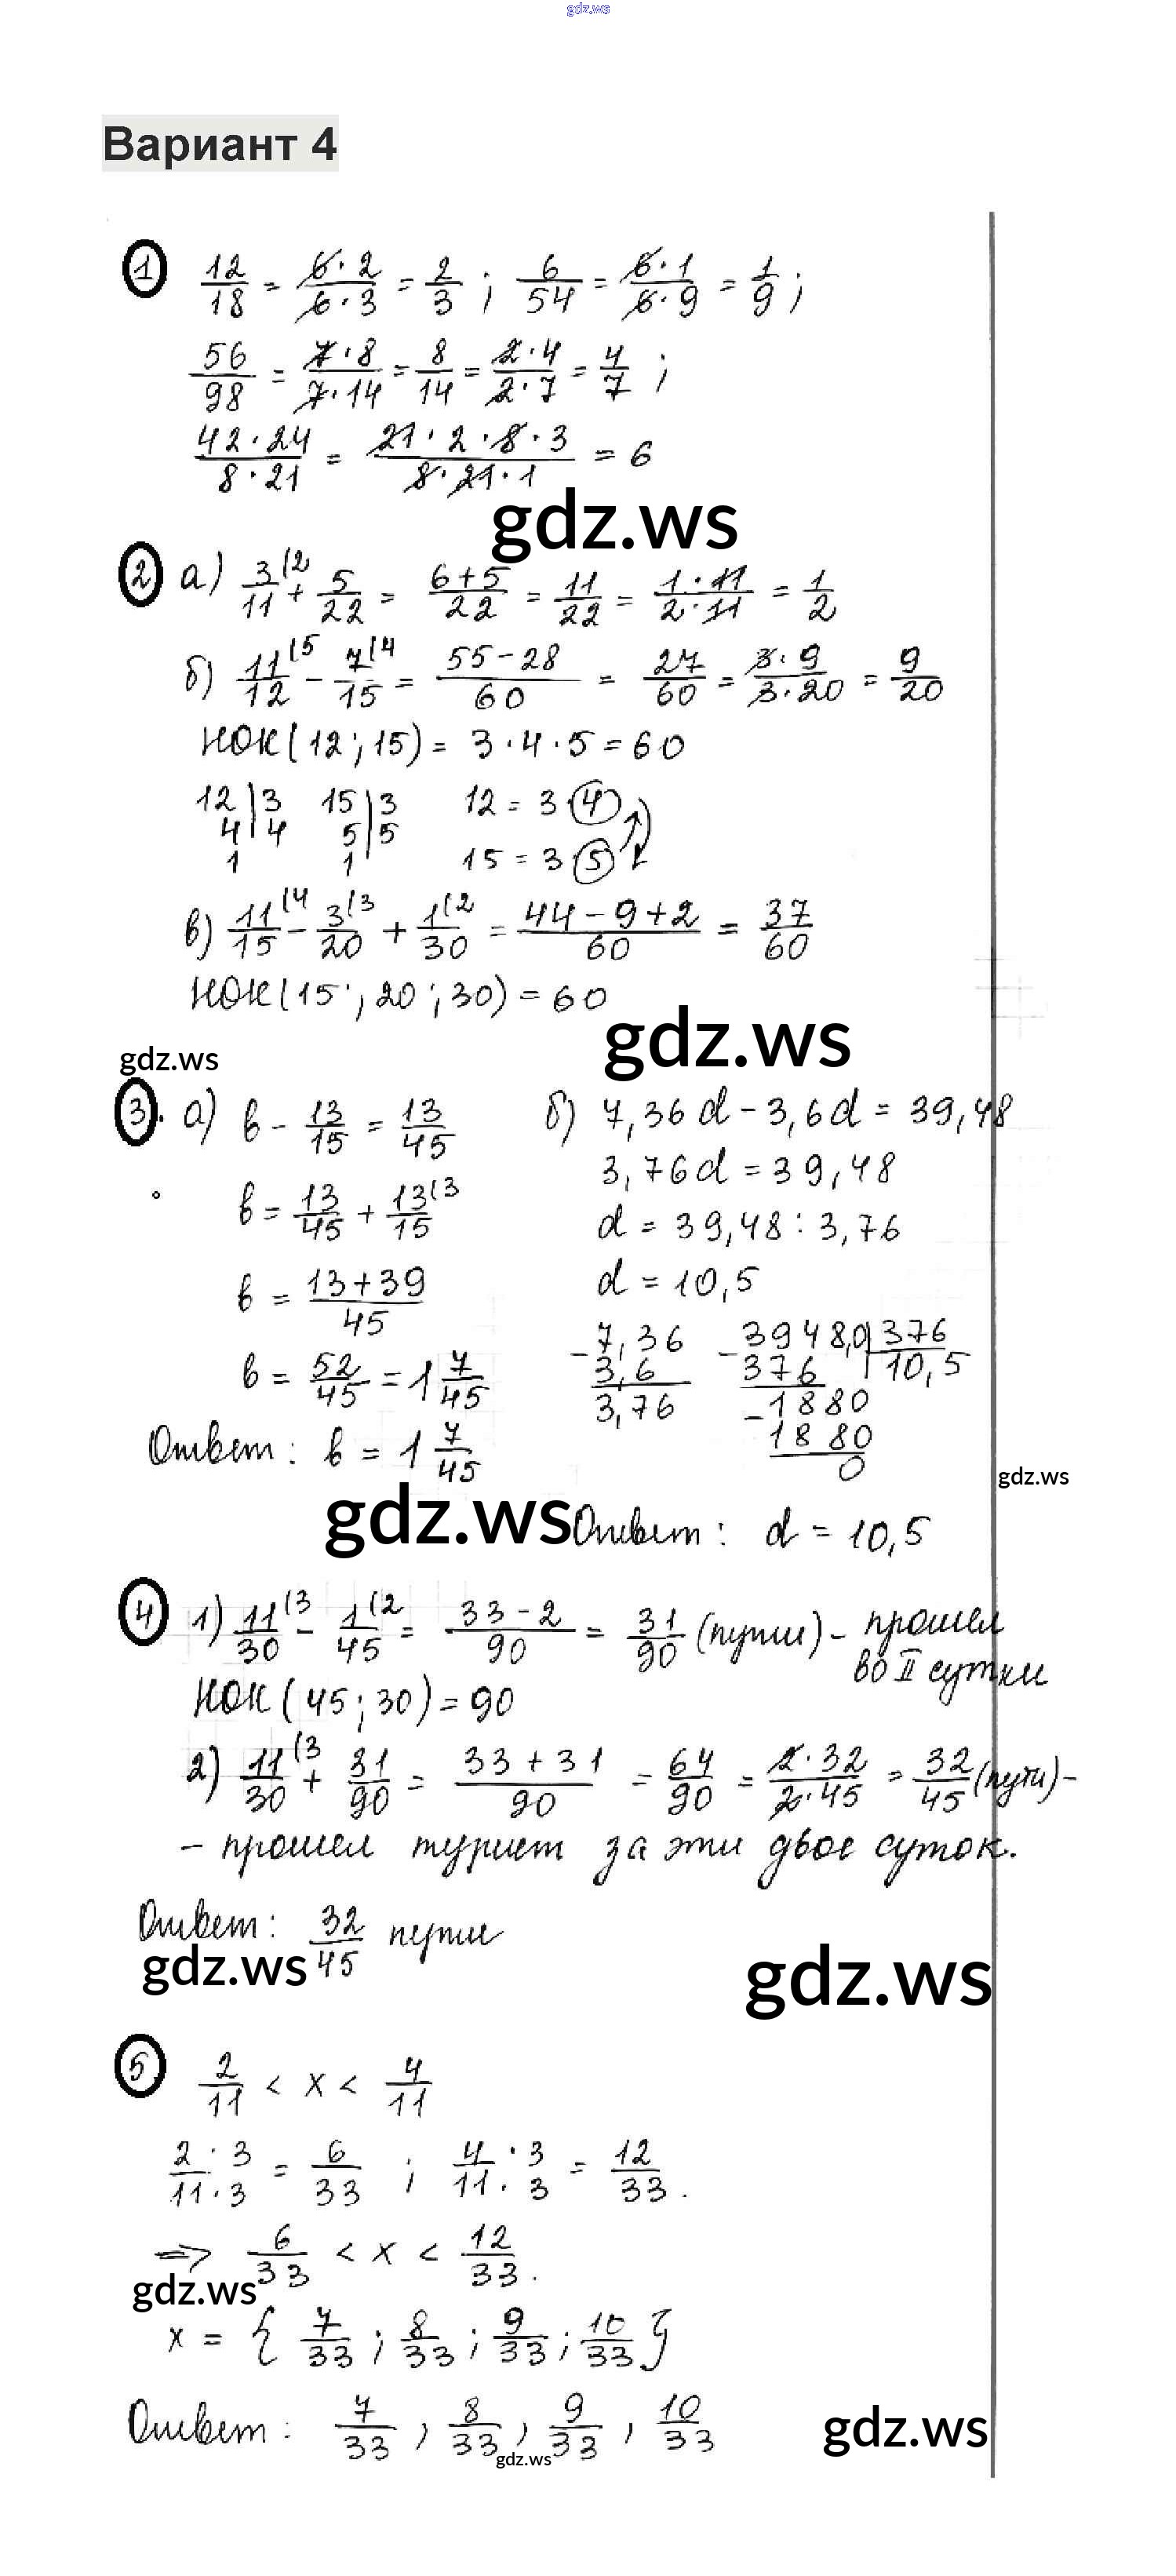 gdz.ws
Вариант 4
1 12/18 = 6·2/6·3 = 2/3 ; 6/54 = 6·1/6·9 = 1/9 ;
56/98 = 7·8/7·14 = 8/14 = 2·4/2·7 = 4/7 ;
42·24/8·21 = 21·2·8·3/8·21·1 = 6
gdz.ws
2 а) 3/11(2 + 5/22 = 6+5/22 = 11/22 = 1·11/2·11 = 1/2
б) 11/12(5 - 7/15(4 = 55-28/60 = 27/60 = 3·9/3·20 = 9/20
НОК(12;15) = 3·4·5 = 60
12|3 15|3 12 = 3·4
4|4 5|5
1 1 15 = 3·5
в) 11/15(4 - 3/20(3 + 1/30(2 = 44-9+2/60 = 37/60
НОК(15;20;30) = 60
gdz.ws
gdz.ws
3. а) в - 13/15 = 13/45 б) 7,36d - 3,6d = 39,48
3,76d = 39,48
в = 13/45 + 13/15(3
d = 39,48 : 3,76
в = 13+39/45
d = 10,5
в = 52/45 = 1 7/45
- 7,36 - 3948,0|376
3,6 376 10,5
3,76 - 1880
1880
0
Ответ: в = 1 7/45
gdz.ws
gdz.ws
Ответ: d = 10,5
4 1) 11/30(3 - 1/45(2 = 33-2/90 = 31/90 (пути) - прошел
во II сутки
НОК(45;30) = 90
2) 11/30(3 + 31/90 = 33+31/90 = 64/90 = 2·32/2·45 = 32/45 (пути) -
- прошел турист за эти двое суток.
Ответ: 32/45 пути
gdz.ws
gdz.ws
5 2/11 < x < 4/11
2·3/11·3 = 6/33 ; 4·3/11·3 = 12/33.
=> 6/33 < x < 12/33.
gdz.ws
x = { 7/33 ; 8/33 ; 9/33 ; 10/33 }
Ответ: 7/33 , 8/33 , 9/33 , 10/33
gdz.ws
gdz.ws